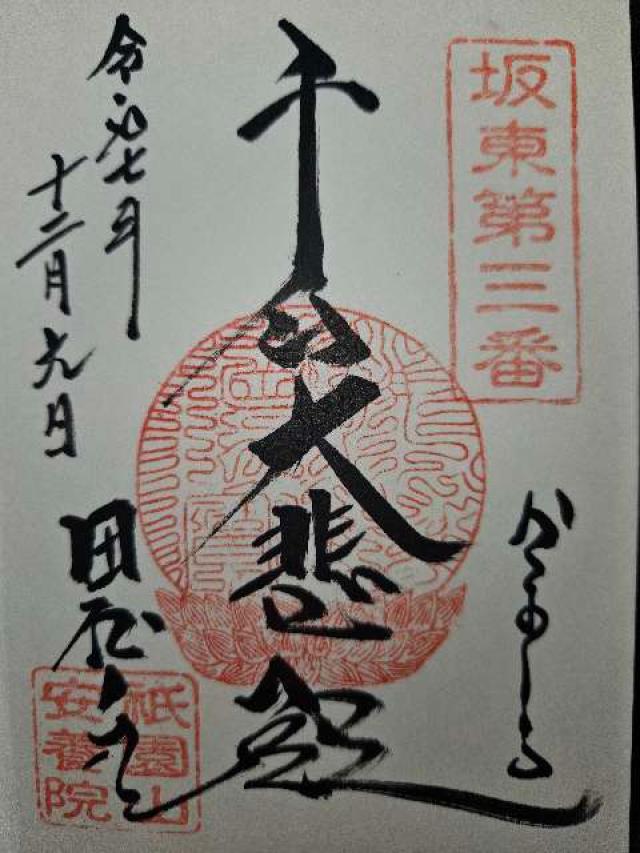 坂東第三番
かまくら
千手大悲殿
令和七年
十二月九日
田代寺
祇園山
安養院